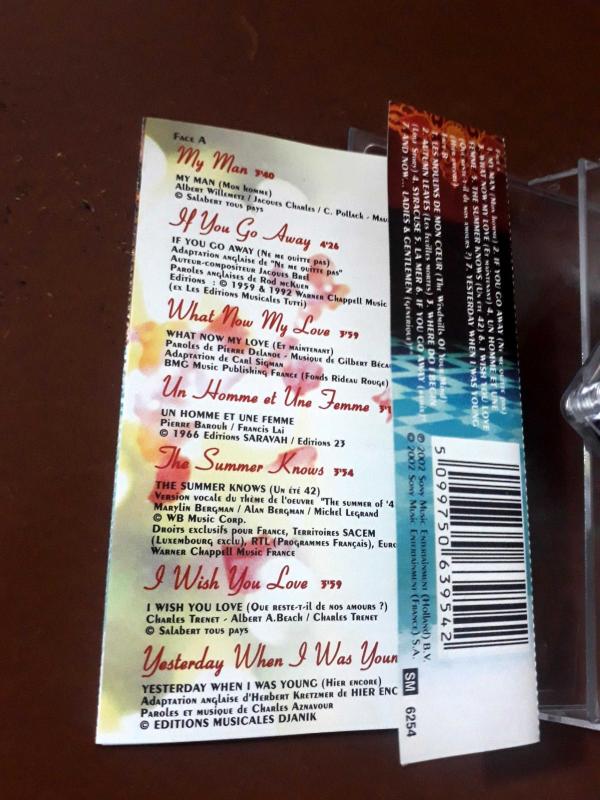 FACE A
My Man 3'40
MY MAN (MON HOMME)
ALBERT WILLEMETZ / JACQUES CHARLES / C. POLLACK - MAU
© SALABERT TOUS PAYS
If You Go Away 4'26
IF YOU GO AWAY (NE ME QUITTE PAS)
ADAPTATION ANGLAISE DE "NE ME QUITTE PAS"
AUTEUR-COMPOSITEUR JACQUES BREL
PAROLES ANGLAISES DE ROD MCKUEN
EDITIONS : © 1959 & 1992 WARNER CHAPPELL MUSIC
(EX LES EDITIONS MUSICALES TUTTI)
What Now My Love 3'59
WHAT NOW MY LOVE (ET MAINTENANT)
PAROLES DE PIERRE DELANOE - MUSIQUE DE GILBERT BÉCA
ADAPTATION DE CARL SIGMAN
BMG MUSIC PUBLISHING FRANCE (FONDS RIDEAU ROUGE)
Un Homme et Une Femme
UN HOMME ET UNE FEMME
PIERRE BAROUH / FRANCIS LAI
© 1966 EDITIONS SARAVAH / EDITIONS 23
The Summer Knows 3'54
THE SUMMER KNOWS (UN ÉTÉ 42)
VERSION VOCALE DU THÈME DE L'OEUVRE "THE SUMMER OF '4
MARYLIN BERGMAN / ALAN BERGMAN / MICHEL LEGRAND
© WB MUSIC CORP.
DROITS EXCLUSIFS POUR FRANCE, TERRITOIRES SACEM
(LUXEMBOURG EXCLU), RTL (PROGRAMMES FRANÇAIS), EURO
WARNER CHAPPELL MUSIC FRANCE
I Wish You Love 3'59
I WISH YOU LOVE (QUE RESTE-T-IL DE NOS AMOURS ?)
CHARLES TRENET - ALBERT A.BEACH / CHARLES TRENET
© SALABERT TOUS PAYS
Yesterday When I Was Youn
YESTERDAY WHEN I WAS YOUNG (HIER ENCORE)
ADAPTATION ANGLAISE D'HERBERT KRETZMER DE HIER ENC
PAROLES ET MUSIQUE DE CHARLES AZNAVOUR
© EDITIONS MUSICALES DJANIK
1. MY MAN (Mon homme) 2. IF YOU GO AWAY (Ne me quitte pas)
3. WHAT NOW MY LOVE (Et maintenant) 4. UN HOMME ET UNE
FEMME 5. THE SUMMER KNOWS (Un été 42) 6. I WISH YOU LOVE
(Que reste-t-il de nos amours ?) 7. YESTERDAY WHEN I WAS YOUNG
(Hier encore)
Face B
1. LES MOULINS DE MON CŒUR (The Windmills Of Your Mind)
2. AUTUMN LEAVES (Les feuilles mortes) 3. WHERE DO I BEGIN
(Love Story) 4. SYRACUSE 5. LA MER 6. IF YOU GO AWAY
7. AND NOW... LADIES & GENTLEMEN (Générique)
℗ 2002 SONY MUSIC ENTERTAINMENT (HOLLAND) B.V.
© 2002 SONY MUSIC ENTERTAINMENT (FRANCE) S.A.
5 099750 639542
SM 6254